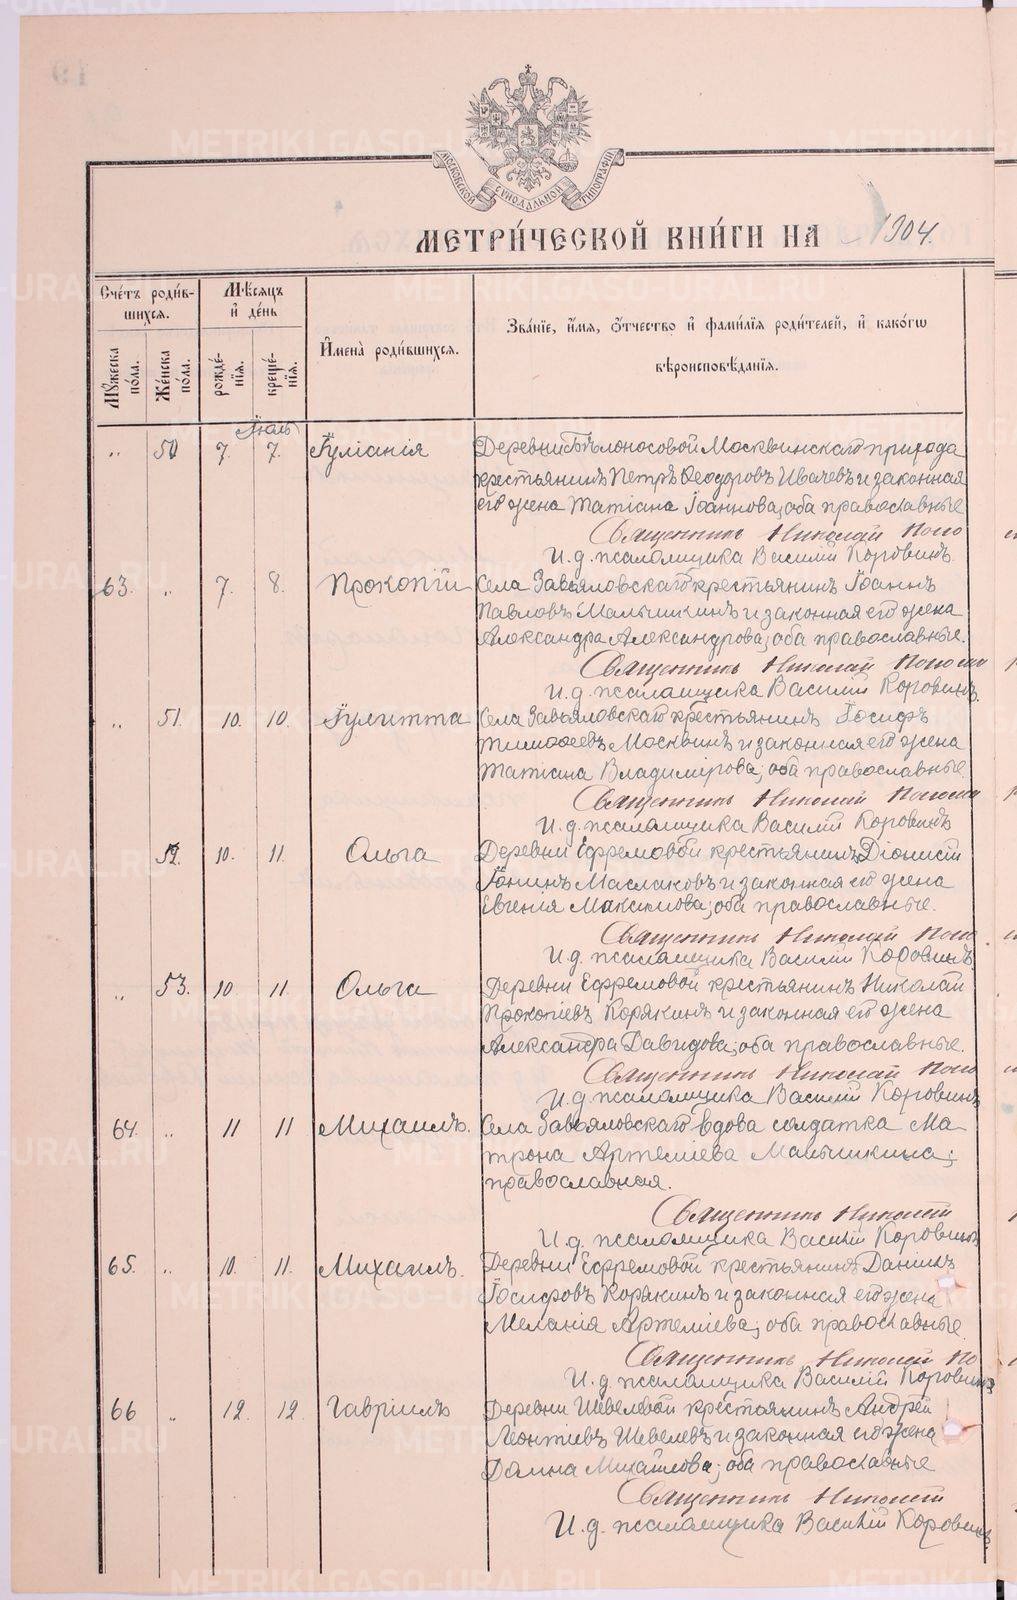 МОСКОВСКОЙ СУНОДАЛЬНОЙ ТИПОГРАФІИ
МЕТРИ́ЧЕСКОЙ КНИ́ГИ НА 1904.
Сче́тъ роди́в-
шихся.
Мꙋ́жеска
по́ла.
Же́нска
по́ла.
Мѣ́сяцъ
и҆ де́нь
рожде́-
нїя.
креще́-
нїя.
И҆мена̀ роди́вшихся.
Зва́нїе, и҆́мя, ѻ҆́тчество и҆ фами́лїя роди́телей, и҆ како́гѡ
вѣроисповѣ́данїя.
Іюль
„ 50 7. 7. Іуліанія Деревни Бѣлоносовой Москвинскаго прихода
крестьянинъ Петръ Ѳеодоровъ Ивачевъ и законная
его жена Татіана Іоаннова; оба православные
Священникъ Николай Попо
И.д. псаломщика Василій Коровинъ.
63. „ 7. 8. Прокопій Села Завьяловскаго крестьянинъ Іоаннъ
Павловъ Малышкинъ и законная его жена
Александра Александрова; оба православные.
Священникъ Николай
И.д. псаломщика Василій Коровинъ.
„ 51. 10. 10. Іулитта Села Завьяловскаго крестьянинъ Іосифъ
Тимоѳеевъ Москвинъ и законная его жена
Татіана Владимірова; оба православные
Священникъ Николай
И.д. псаломщика Василій Коровинъ
52. 10. 11. Ольга Деревни Ефремовой крестьянинъ Діонисій
Маслаковъ и законная его жена
Евгенія Максимова; оба православные.
Священникъ Николай Попо
И.д. псаломщика Василій Коровинъ.
„ 53. 10 11. Ольга Деревни Ефремовой крестьянинъ Николай
Прокопіевъ Корякинъ и законная его жена
Александра Давидова; оба православные.
Священникъ Николай Попо
И.д. псаломщика Василій Коровинъ
64. „ 11 11 Михаилъ. Села Завьяловскаго вдова солдатка Ма-
трона Артеміева Малышкина;
православная.
Священникъ Николай
И.д. псаломщика Василій Коровинъ
65. „ 10. 11. Михаилъ. Деревни Ефремовой крестьянинъ Даніилъ
Іосифовъ Корякинъ и законная его жена
Меланія Артеміева; оба православные
Священникъ Николай По
И.д. псаломщика Василій Коровинъ
66 „ 12. 12. Гавріилъ Деревни Шевелевой крестьянинъ Андрей
Леонтіевъ Шевелевъ и законная его жена
Домна Михайлова; оба православные
Священникъ Николай
И.д. псаломщика Василій Коровинъ.
METRIKI.GASO-URAL.RU